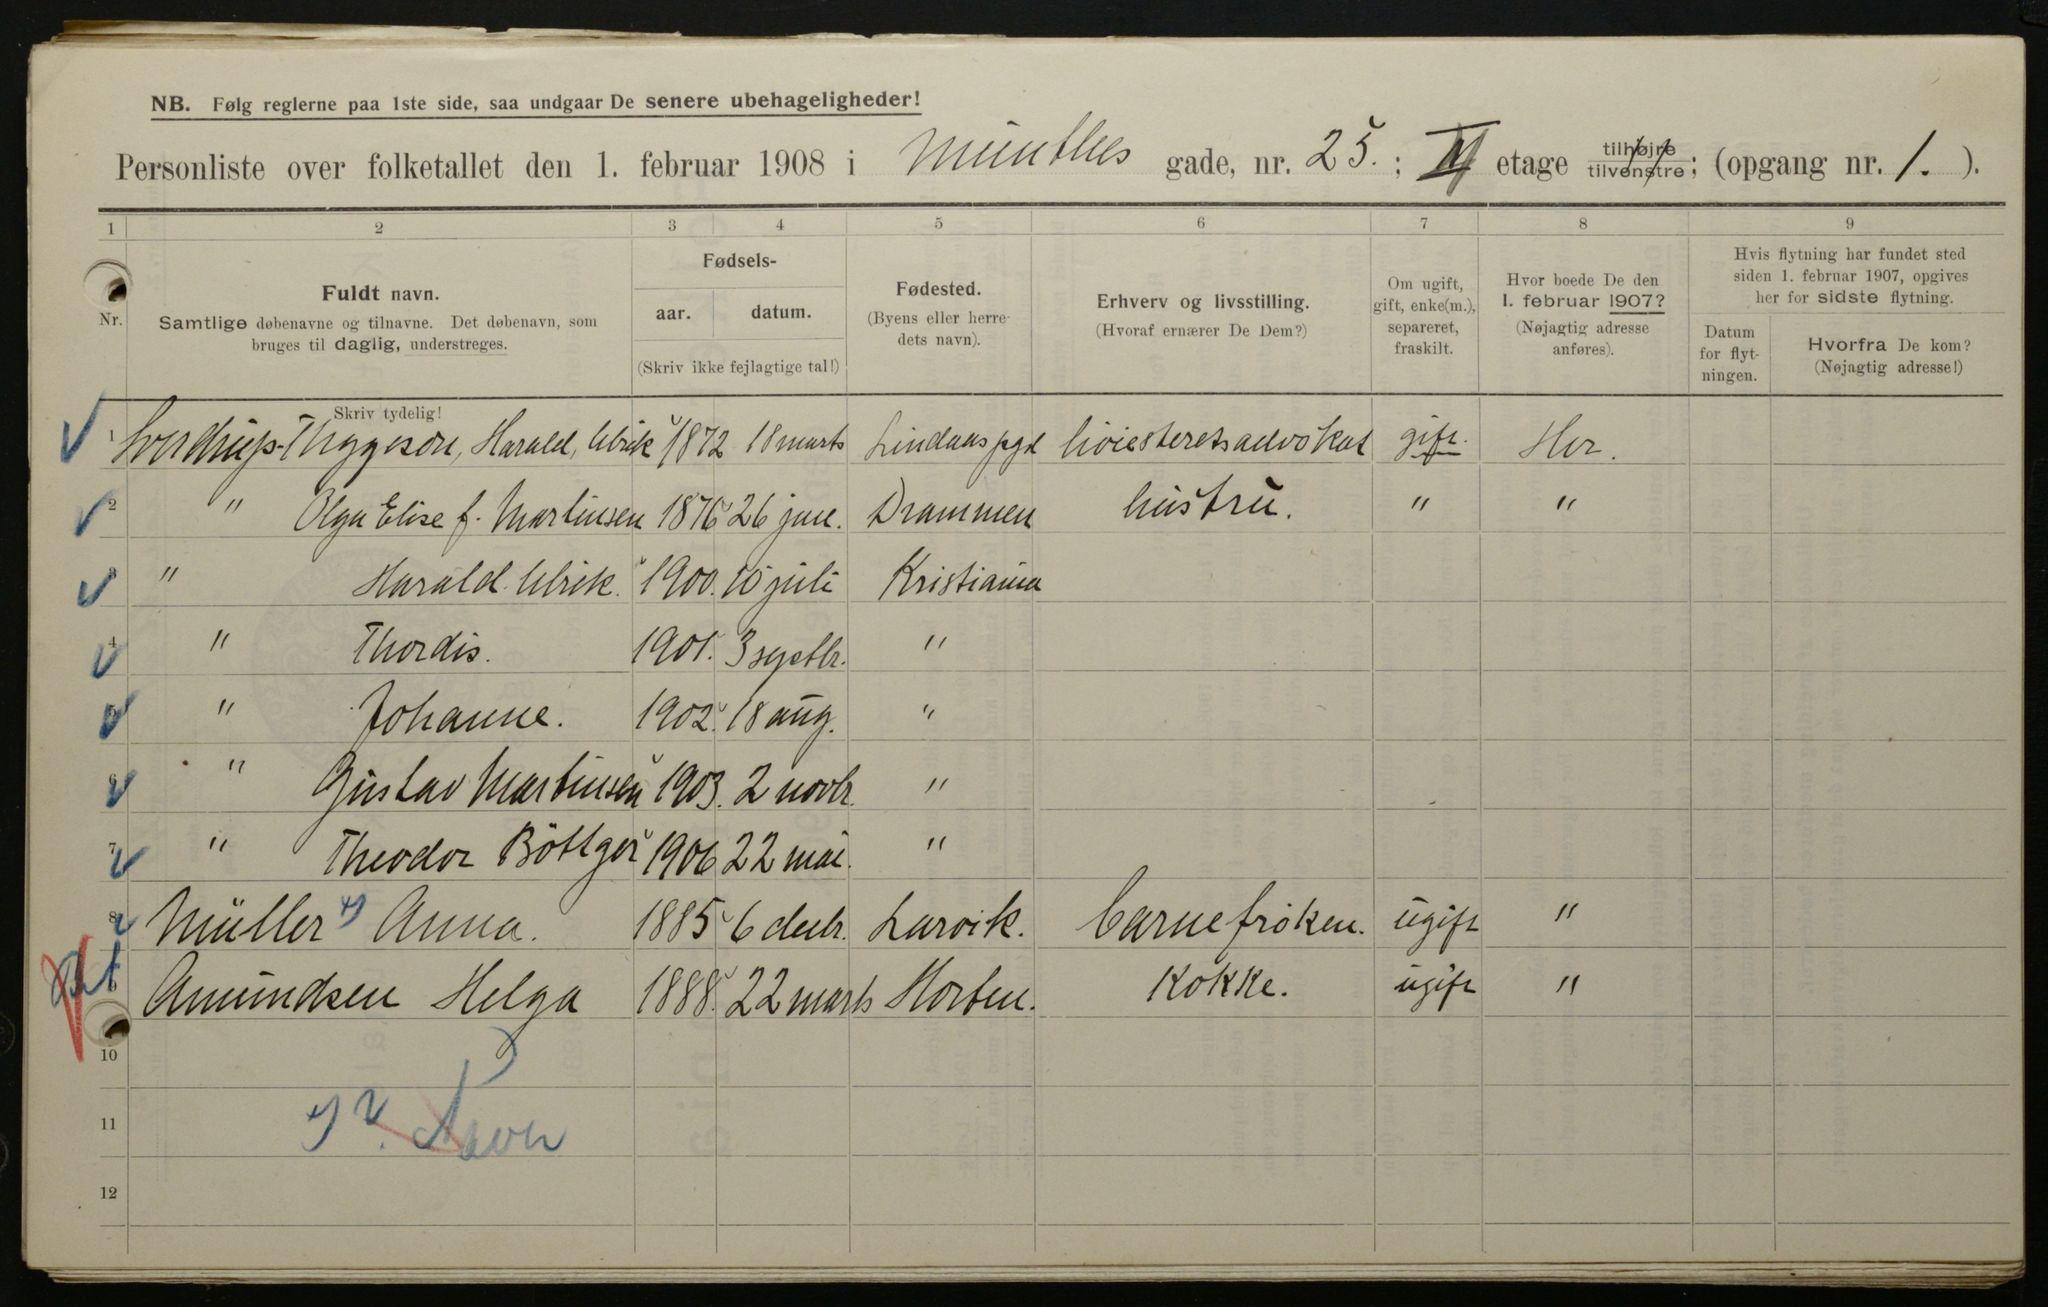 NB. Følg reglerne paa 1ste side, saa undgaar De senere ubehageligheder!
Personliste over folketallet den 1. februar 1908 i Munthes gade, nr. 25. ; II etage tilhøjre tilvenstre ; (opgang nr. 1. ).
1 2 3 4 5 6 7 8 9
Nr.
Fuldt navn.
Samtlige døbenavne og tilnavne. Det døbenavn, som
bruges til daglig, understreges.
Fødsels-
aar. datum.
(Skriv ikke fejlagtige tal!)
Fødested.
(Byens eller herre-
dets navn).
Erhverv og livsstilling.
(Hvoraf ernærer De Dem?)
Om ugift,
gift, enke(m.),
separeret,
fraskilt.
Hvor boede De den
1. februar 1907?
(Nøjagtig adresse
anføres).
Hvis flytning har fundet sted
siden 1. februar 1907, opgives
her for sidste flytning.
Datum
for flyt-
ningen.
Hvorfra De kom?
(Nøjagtig adresse!)
Skriv tydelig!
1 Sverdrup-Thygeson, Harald, Ulrik 1872 18 marts Lindaas pgd höiesteretsadvokat gift. Her.
2 " Olga Elise f. Martinsen 1876 26 jan. Drammen hustru. " "
3 " Harald Ulrik. 1900. 10 juli Kristiania
4 " Thordis. 1901. 3 septbr. "
5 " Johanne. 1902. 18 aug. "
6 " Gustav Martinsen 1903. 2 novbr. "
7 " Theodor Böttger 1906 22 mai. "
8 Müller Anna. 1885 6 decbr. Larvik. barnefröken. ugift "
9 Amundsen Helga 1888. 22 marts Horten. Kokke. ugift "
10
11
12